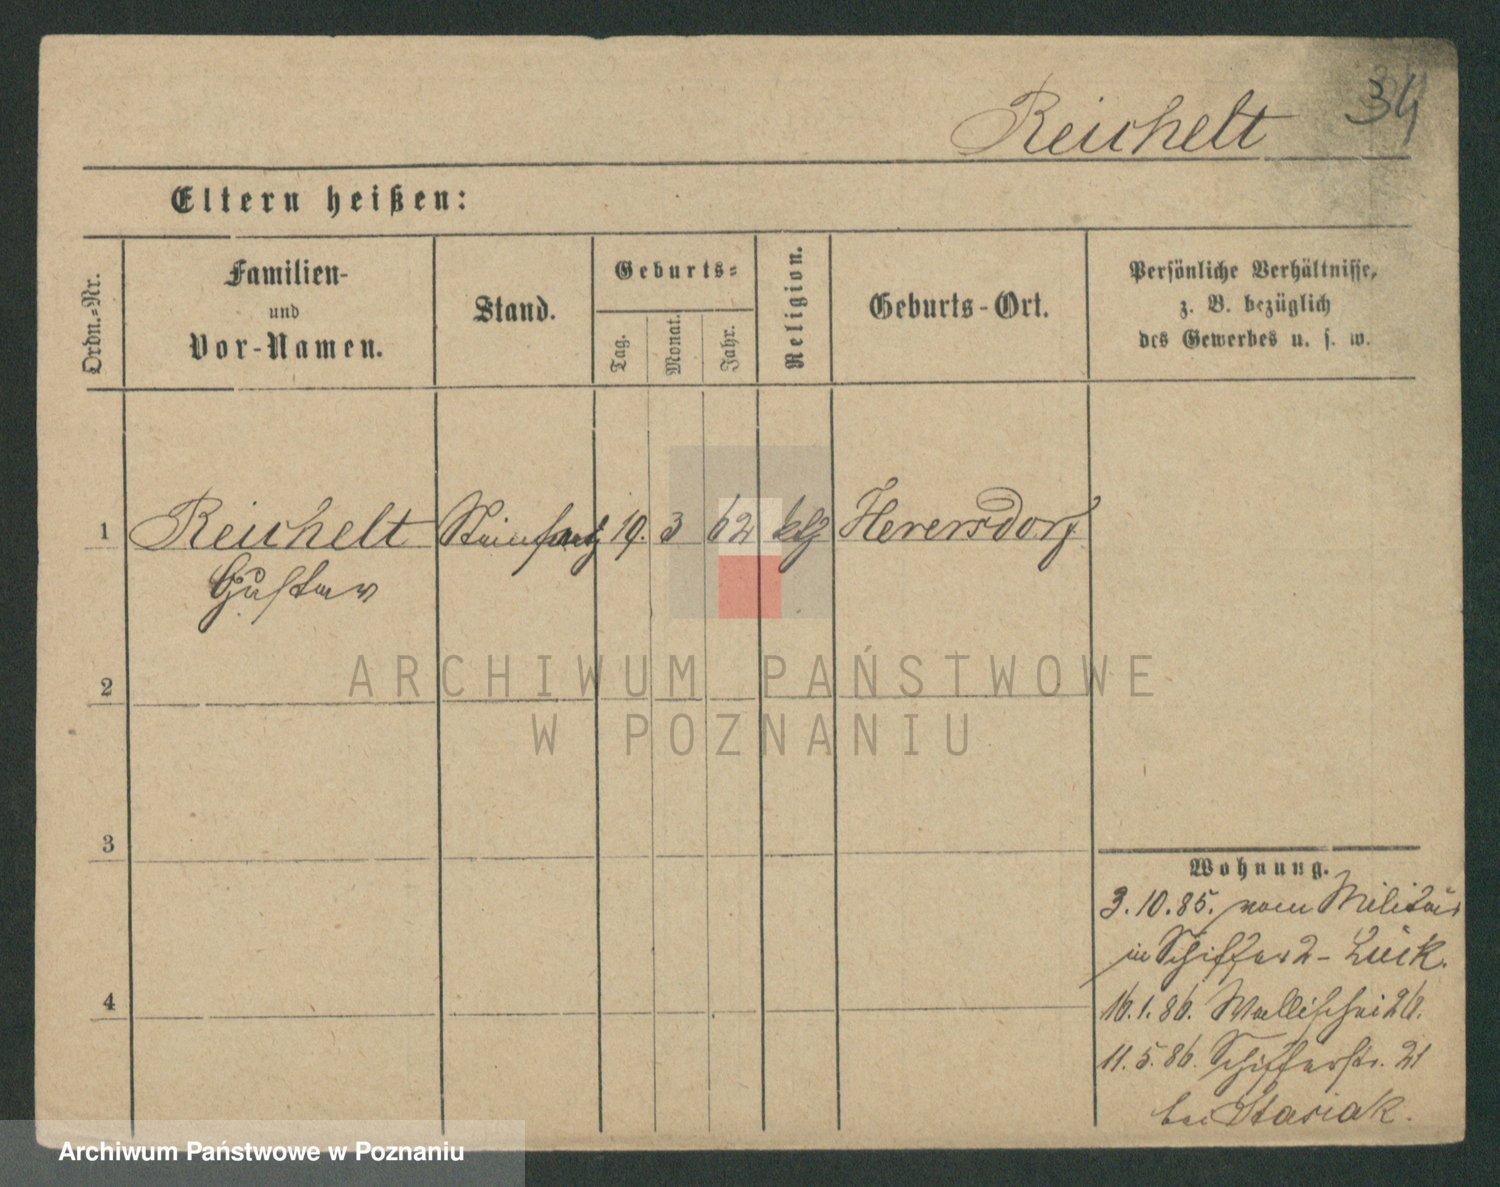 Reichelt 34
Eltern heißen:
Ordn.-Nr.
Familien-
und
Vor-Namen.
Stand.
Geburts-
Tag.
Monat.
Jahr.
Religion.
Geburts-Ort.
Persönliche Verhältnisse,
z. B. bezüglich
des Gewerbes u. s. w.
1 Reichelt 19. 3 62 Herersdorf
Gustav
2
3
4
Wohnung.
3.10.85. vom Militär
in Schifferstr. 2 - Lück.
16.1.86. Wallischei 26.
11.5.86. Schifferstr. 21
bei Stasiak.
ARCHIWUM PAŃSTWOWE
W POZNANIU
Archiwum Państwowe w Poznaniu